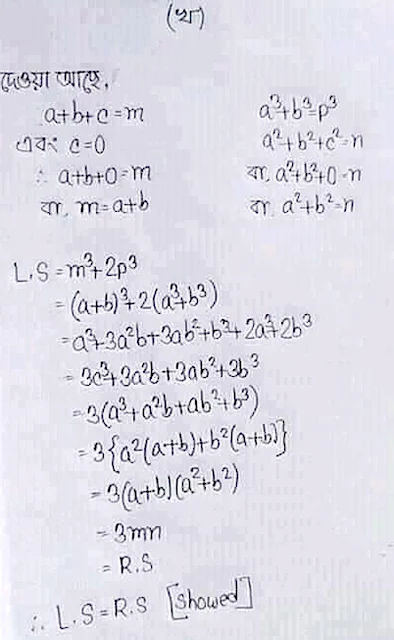 (খ)
দেওয়া আছে,
a+b+c=m a³+b³=p³
এবং c=0 a²+b²+c²=n
∴ a+b+0=m বা, a²+b²+0=n
বা, m=a+b বা, a²+b²=n
L.S = m³+2p³
= (a+b)³+2(a³+b³)
= a³+3a²b+3ab²+b³+2a³+2b³
= 3a³+3a²b+3ab²+3b³
= 3(a³+a²b+ab²+b³)
= 3{a²(a+b)+b²(a+b)}
= 3(a+b)(a²+b²)
= 3mn
= R.S
∴ L.S = R.S [showed]